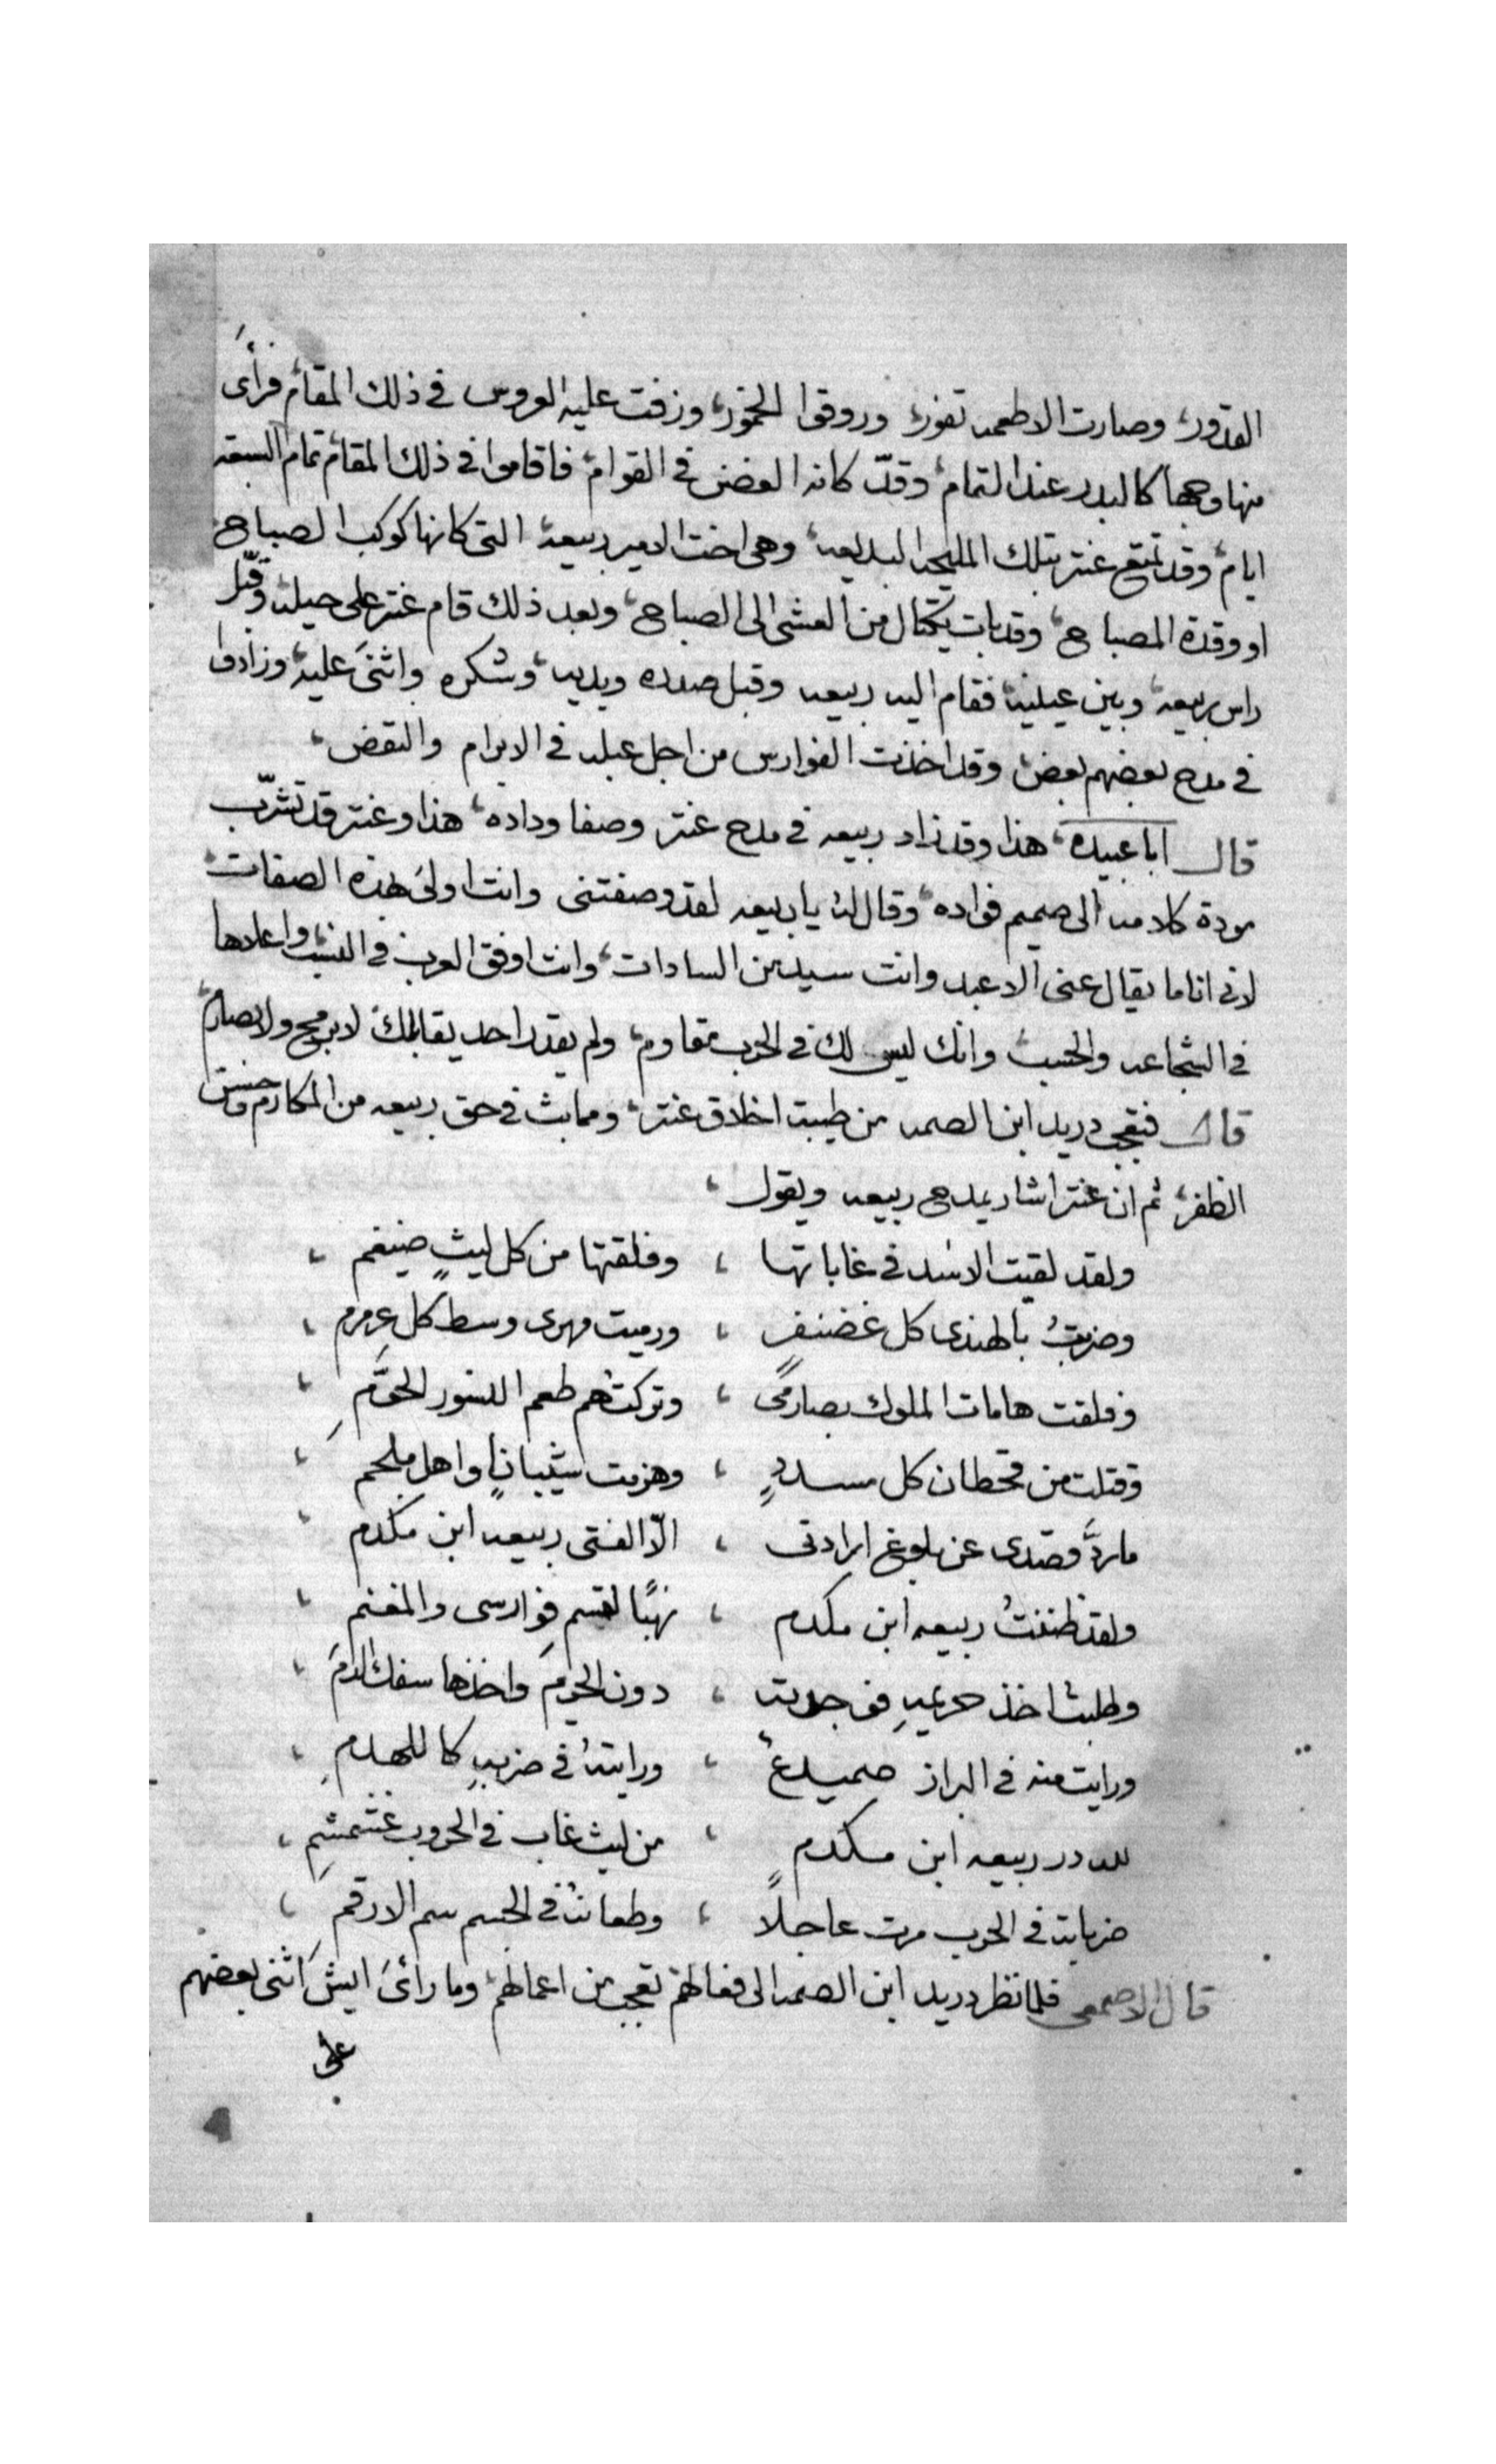 القدور، وصارت الاطعمه تفور، وروقوا الخمور، وزفت عليه العروس في ذلك المقام، فرأى
منها وجها كالبدر عند التمام، وقدّ كانه الغصن في القوام، فاقاموا في ذلك المقام، تمام السبعه
ايام، وقد تمتع عنتر بتلك المليحه البديعه، وهي اخت الامير ربيعه، التي كانها كوكب الصباح،
او وقدة المصباح، وقد بات يكتال من العشى الى الصباح، وبعد ذلك قام عنتر على حيله، وقبّل
راس ربيعه، وبين عينيه، فقام اليه ربيعه وقبل صدره ويديه، وشكره واثنى عليه، وزادوا
في مدح بعضهم بعض، وقد اخذت الفوارس من اجل عبله في الابرام والنقض،
قال ابا عبيده، هذا وقد زاد ربيعه في مدح عنتر وصفا وداده، هذا وعنتر قد تشرّب
مودة كلامه الى صميم فواده، وقال له يا ربيعه لقد وصفتني وانت اولى بهذه الصفات،
لاني انا ما يقال عني الا عبد وانت سيد من السادات، وانت اوفق العرب في النسب، واعلاها
في الشجاعه والحسب، وانك ليس لك في الحرب مقاوم، ولم يقدر احد يقابلك لا برمح ولا بصارم،
قال فتعجب دريد ابن الصمه من طيبة اخلاق عنتر، ومما بث في حق ربيعه من المكارم وحسن
الظفر، ثم ان عنتر اشار يمدح ربيعه ويقول،
ولقد لقيت الاسد في غاباتها ، وفلقتها من كل ليثٍ ضيغم ،
وضربتُ بالهندى كل غضنفرٍ ، ورميت مهرى وسط كل عرمرم ،
وفلقت هامات الملوك بصارمى ، وتركتهم طعم النسور الحوَّمِ ،
وقتلت من قحطان كل مسددٍ ، وهزمت شيبانٍ واهل ملحم ،
ماردَّ قصدى عن بلوغ ارادتى ، الّا الفتى ربيعه ابن مكدم ،
ولقد ظننتُ ربيعه ابن مكدم ، نهبًا لقسم فوارسى والمغنم ،
وطلبت اخذ حريمهِ فوجدته ، دون الحريم واخذها سفك الدم ،
ورايت منه في البراز صميدعٌ ، ورايتهُ في ضربهِ كاللهدمِ ،
لله در ربيعه ابن مكدمٍ ، من ليث غاب في الحروب غشمشمِ ،
ضرباته في الحرب موت عاجلاً ، وطعانهُ في الجسم سم الارقمِ ،
قال الاصمعى فلما نظر دريد ابن الصمه الى فعالهم، تعجب من اعمالهم، وما رأى ايش اثنى بعضهم
على